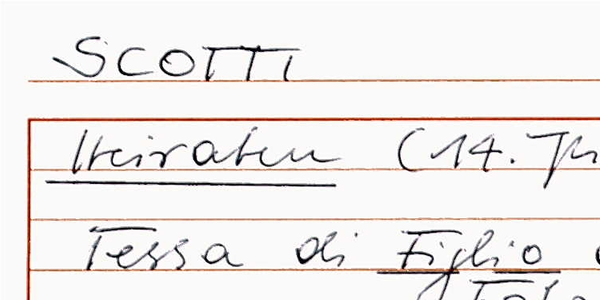 SCOTTI
Heiraten (14.
Tessa di Figlio